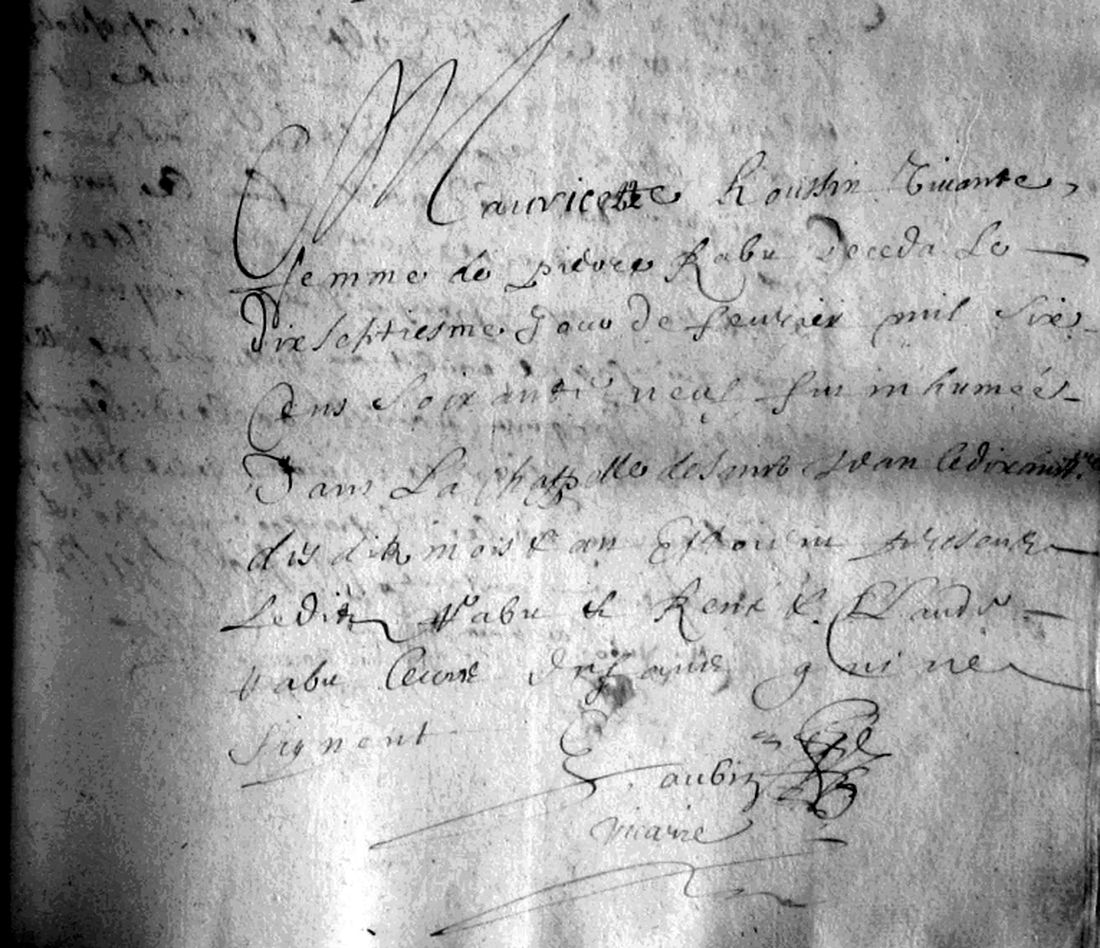 Mauricette houssin Vivante
femme de pierre Rabu Deceda Le
dixseptiesme Jour de feuvrier mil six
Cens soixante neuf fut inhumée
Dans La chappelle de saint Jean le dixhuit
dudit mois & an Estoient presens
Ledit Rabu & René & Claude
Rabu leurs Enfans qui ne
signent
aubin
vicaire